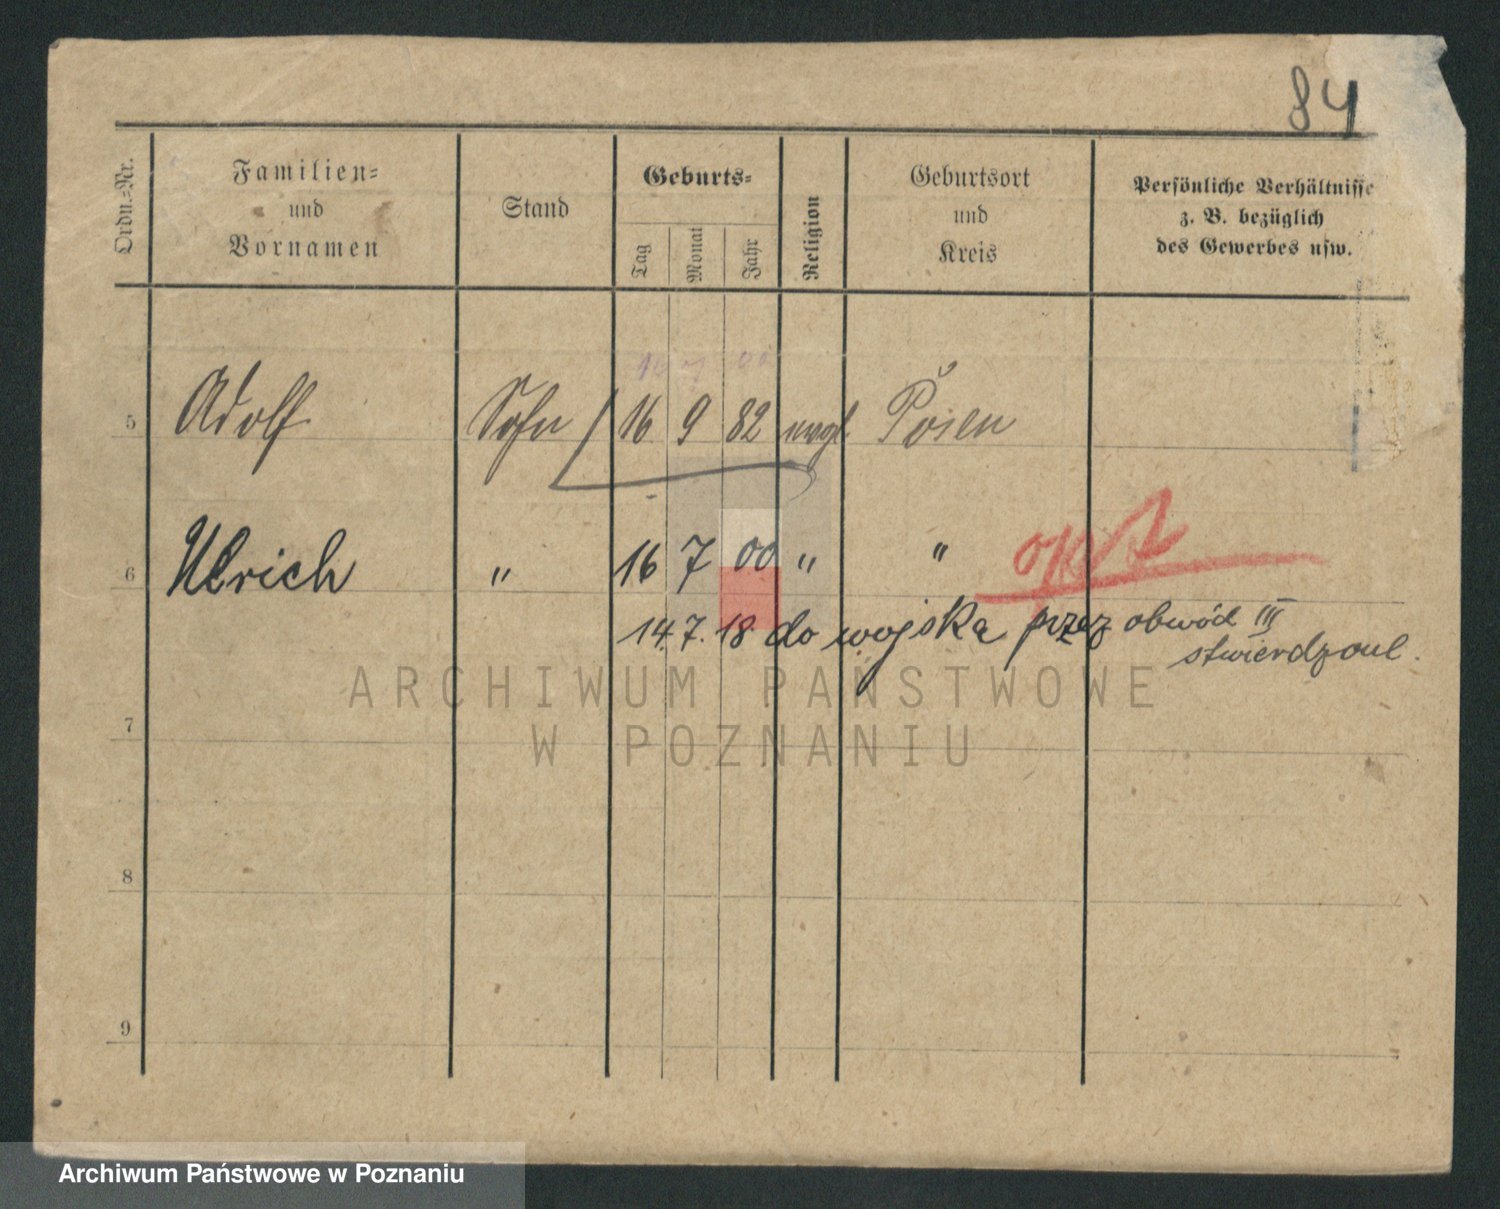 84
Ordn.-Nr.
Familien-
und
Vornamen
Stand
Geburts-
Tag
Monat
Jahr
Religion
Geburtsort
und
Kreis
Persönliche Verhältnisse
z. B. bezüglich
des Gewerbes usw.
16 7 00
5 Adolf Sohn 16 9 82 evgl. Posen
6 Ulrich " 16 7 00 " "
14.7.18 do wojska przez obwód III
ARCHIWUM PAŃSTWOWE
W POZNANIU
7
8
9
Archiwum Państwowe w Poznaniu